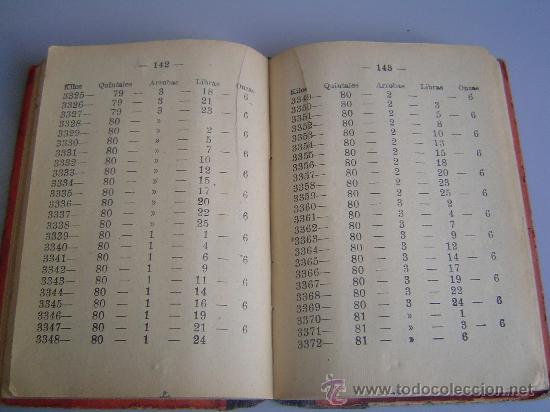 — 142 —
Kilos Quintales Arrobas Libras Onzas
3325— 79 — 3 — 18 — 6
3326— 79 — 3 — 21
3327— 79 — 3 — 23 — 6
3328— 80 — »
3329— 80 — » — 2 — 6
3330— 80 — » — 5
3331— 80 — » — 7 — 6
3332— 80 — » — 10
3333— 80 — » — 12 — 6
3334— 80 — » — 15
3335— 80 — » — 17 — 6
3336— 80 — » — 20
3337— 80 — » — 22 — 6
3338— 80 — » — 25
3339— 80 — 1 — 1 — 6
3340— 80 — 1 — 4
3341— 80 — 1 — 6 — 6
3342— 80 — 1 — 9
3343— 80 — 1 — 11 — 6
3344— 80 — 1 — 14
3345— 80 — 1 — 16 — 6
3346— 80 — 1 — 19
3347— 80 — 1 — 21 — 6
3348— 80 — 1 — 24
— 143 —
Kilos Quintales Arrobas Libras Onzas
3349— 80 — 2 — — 6
3350— 80 — 2 — 3
3351— 80 — 2 — 5 — 6
3352— 80 — 2 — 8
3353— 80 — 2 — 10 — 6
3354— 80 — 2 — 13
3355— 80 — 2 — 15 — 6
3356— 80 — 2 — 18
3357— 80 — 2 — 20 — 6
3358— 80 — 2 — 23
3359— 80 — 2 — 25 — 6
3360— 80 — 3 — 2
3361— 80 — 3 — 4 — 6
3362— 80 — 3 — 7
3363— 80 — 3 — 9 — 6
3364— 80 — 3 — 12
3365— 80 — 3 — 14 — 6
3366— 80 — 3 — 17
3367— 80 — 3 — 19 — 6
3368— 80 — 3 — 22
3369— 80 — 3 — 24 — 6
3370— 81 — » — 1
3371— 81 — » — 3 — 6
3372— 81 — » — 6
todocoleccion
www.todocoleccion.net